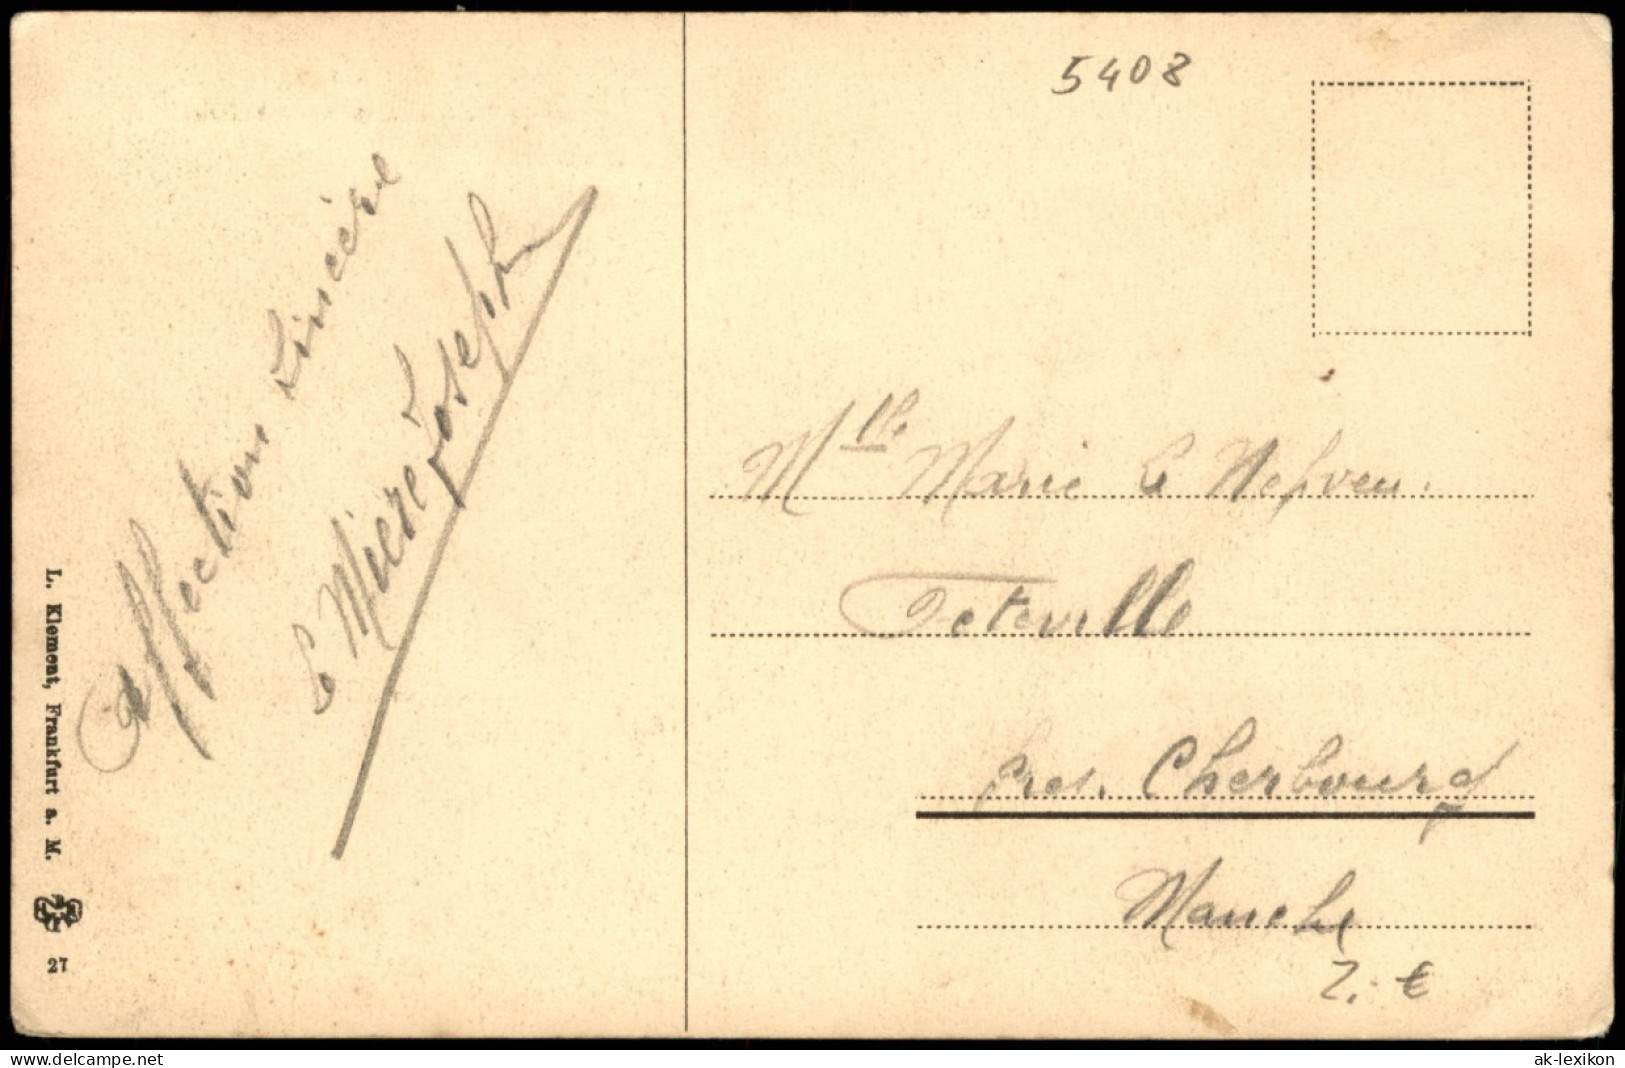 5408
Affection Sincère
Le Mière Joseph
Mlle Marie Le Nepveu.
Teteville
près. Cherbourg
Manche
2.- €
L. Klement, Frankfurt a. M.
27
delcampe.net
ak-lexikon